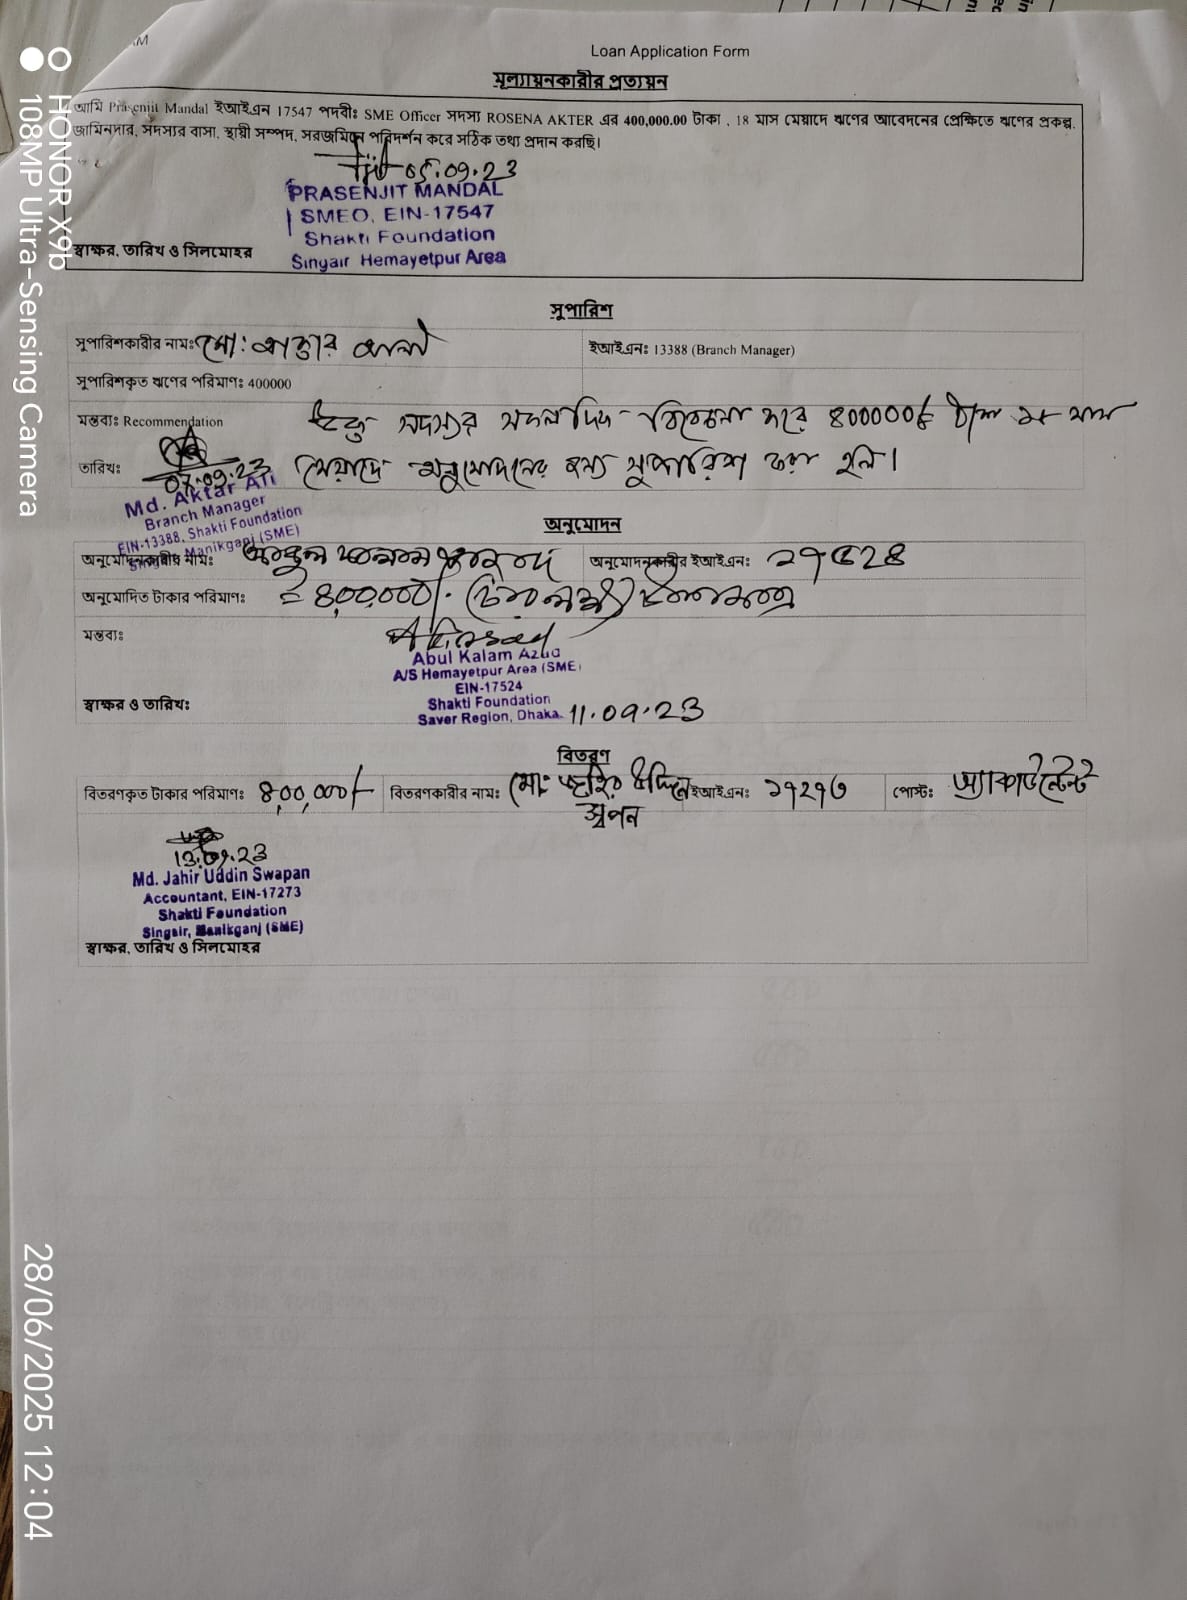 Loan Application Form
মূল্যায়নকারীর প্রত্যয়ন
আমি Prasenjit Mandal ইআইএন 17547 পদবীঃ SME Officer সদস্য ROSENA AKTER এর 400,000.00 টাকা , 18 মাস মেয়াদে ঋণের আবেদনের প্রেক্ষিতে ঋণের প্রকল্প,
জামিনদার, সদস্যর বাসা, স্থায়ী সম্পদ, সরজমিনে পরিদর্শন করে সঠিক তথ্য প্রদান করছি।
05.09.23
PRASENJIT MANDAL
SMEO, EIN-17547
Shakti Foundation
Singair Hemayetpur Area
স্বাক্ষর, তারিখ ও সিলমোহর
সুপারিশ
সুপারিশকারীর নামঃ মো: আক্তার আলী
ইআইএনঃ 13388 (Branch Manager)
সুপারিশকৃত ঋণের পরিমাণঃ 400000
মন্তব্যঃ Recommendation উক্ত সদস্যর সকলদিক বিবেচনা করে ৪০০০০০/ টাকা ১৮ মাস
মেয়াদে অনুমোদনের জন্য সুপারিশ করা হল।
তারিখঃ 07.09.23
Md. Aktar Ali
Branch Manager
EIN-13388, Shakti Foundation
Singair, Manikganj (SME)
অনুমোদন
অনুমোদনকারীর নামঃ আবুল কালাম আজাদ অনুমোদনকারীর ইআইএনঃ ১৭৫২৪
অনুমোদিত টাকার পরিমাণঃ = ৪,০০,০০০/- (চার লক্ষ) টাকা মাত্র
মন্তব্যঃ
Abul Kalam Azad
A/S Hemayetpur Area (SME)
EIN-17524
Shakti Foundation
Saver Region, Dhaka. 11.09.23
স্বাক্ষর ও তারিখঃ
বিতরণ
বিতরণকৃত টাকার পরিমাণঃ ৪,০০,০০০/- বিতরণকারীর নামঃ মোঃ জহির উদ্দিন স্বপন ইআইএনঃ ১৭২৭৩ পোস্টঃ অ্যাকাউন্টেন্ট
13.09.23
Md. Jahir Uddin Swapan
Accountant, EIN-17273
Shakti Foundation
Singair, Manikganj (SME)
স্বাক্ষর, তারিখ ও সিলমোহর
HONOR X9b
108MP Ultra-Sensing Camera
28/06/2025 12:04